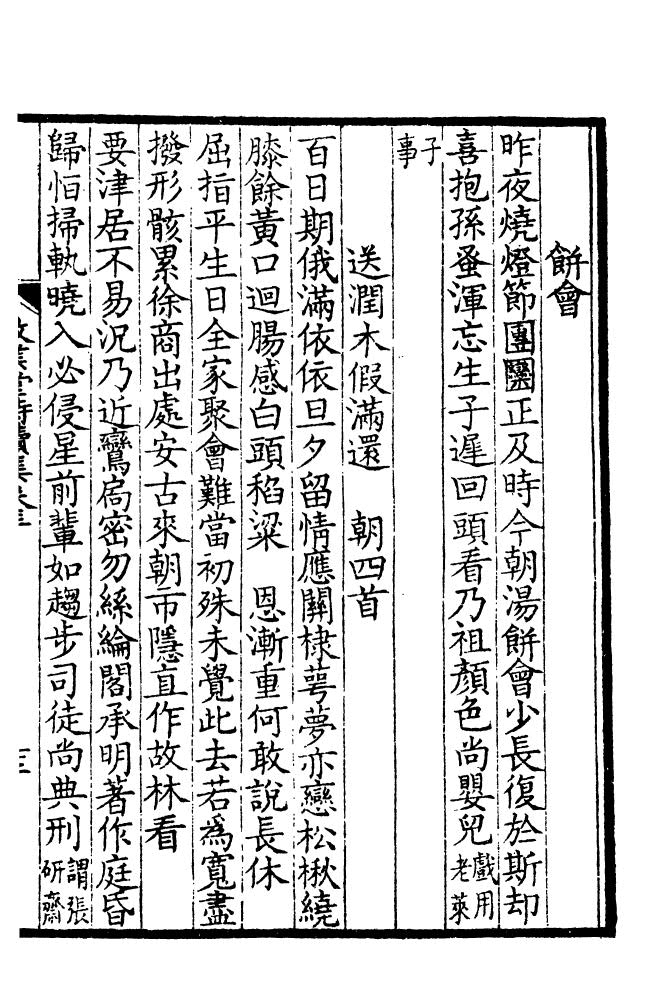 餅會
昨夜燒燈節團圞正及時今朝湯餅會少長復於斯却
喜抱孫蚤渾忘生子遲回頭看乃祖顏色尚嬰兒戲用老萊
子事
送潤木假滿還　朝四首
百日期俄滿依依旦夕留情應關棣萼夢亦戀松楸繞
膝餘黃口迴腸感白頭稻粱　恩漸重何敢說長休
屈指平生日全家聚會難當初殊未覺此去若爲寬盡
撥形骸累徐商出處安古來朝市隱直作故林看
要津居不易況乃近鸞扃密勿絲綸閣承明著作庭昏
歸怕掃軌曉入必侵星前輩如趨步司徒尚典刑謂張研齋